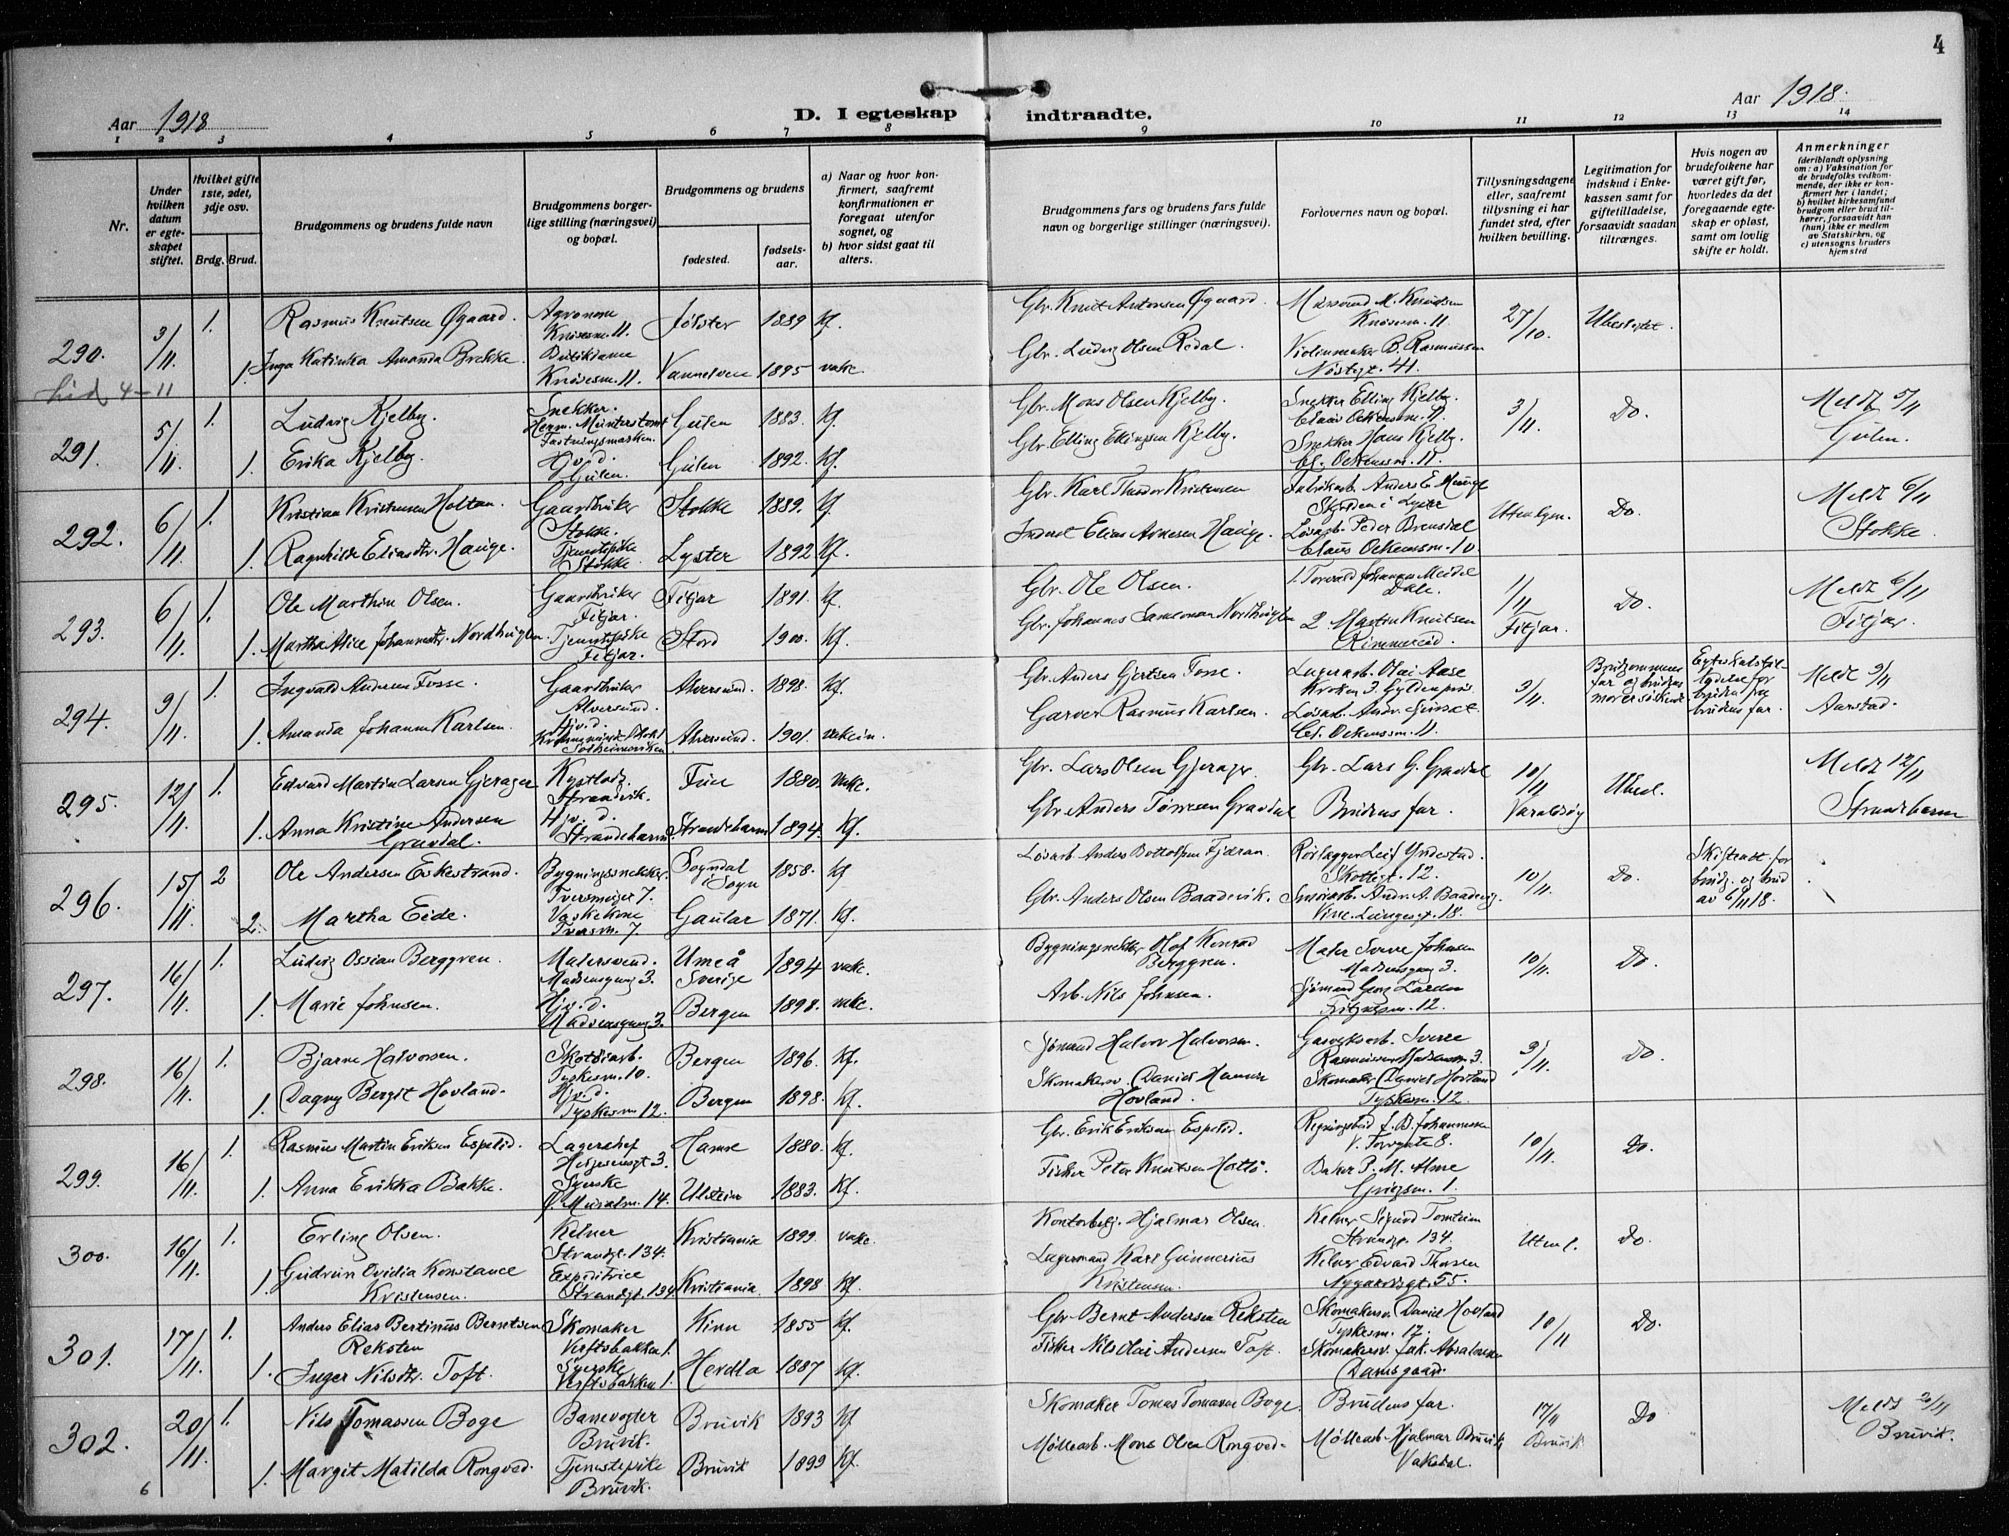 4
Aar 1918
D. I egteskap indtraadte.
Aar 1918.
1 2 3 4 5 6 7 8 9 10 11 12 13 14
Nr.
Under hvilken datum er egteskapet stiftet.
Hvilket gifte 1ste, 2det, 3dje osv.
Brdg. Brud.
Brudgommens og brudens fulde navn
Brudgommens borgerlige stilling (næringsvei) og bopæl.
Brudgommens og brudens
fødested.
fødselsaar.
a) Naar og hvor konfirmert, saafremt konfirmationen er foregaat utenfor sognet, og
b) hvor sidst gaat til alters.
Brudgommens fars og brudens fars fulde navn og borgerlige stillinger (næringsvei).
Forlovernes navn og bopæl.
Tillysningsdagene eller, saafremt tillysning ei har fundet sted, efter hvilken bevilling.
Legitimation for indskud i Enkekassen samt for giftetilladelse, forsaavidt saadan tiltrænges.
Hvis nogen av brudefolkene har været gift før, hvorledes da det foregaaende egteskap er opløst, samt om lovlig skifte er holdt.
Anmerkninger
(deriblandt oplysning om: a) Vaksination for de brudefolks vedkommende, der ikke er konfirmert her i landet; b) hvilket kirkesamfund brudgom eller brud tilhører, forsaavidt han (hun) ikke er medlem av Statskirken, og c) utensogns bruders hjemsted
290. 3/11 1. Rasmus Knutsen Øgaard. Agronom Knøsesm. 11. Jølster 1889 kf. Gbr. Knut Antonsen Øgaard. Knøsesm. 11. 27/10. Ubeslegtet.
1. Inga Katinka Amanda Brekke. Butikdame Knøsesm. 11. Vannelven 1895 vake. Gbr. Ludvig Olsen Redal. Violinmaker B. Rasmussen Nøstegt. 41.
4-11
291. 5/11. 1. Ludvig Kjelby. Snekker. Gulen 1883. kf. Gbr. Mons Olsen Kjelby. Snekker Elling Kjelby. Claus Ockenssm. 11. 3/11. Do. Meldt 5/11 Gulen.
1. Erika Kjelby. Hj.v.d. Gulen. Gulen 1892. kf. Gbr. Elling Ellingsen Kjelby. Snekker Hans Kjelby. Cl. Ockenssm. 11.
292. 6/11. 1. Kristian Kristensen Holtan. Gaardbruker Stokke. Stokke 1889. kf. Gbr. Karl Theodor Kristensen Fabrikarb. Anders E. Hauge Skjolden i Lyster Do. Meldt 6/11 Stokke.
1. Ragnhilde Eliasdtr. Hauge. Tjenestepike Stokke. Lyster 1892 kf. Løsarb. Peder Brensdal Claus Ockenssm. 10
293. 6/11. 1. Ole Marthin Olsen. Gaardbruker Fitjar. Fitjar 1891. kf. Gbr. Ole Olsen. 1. Torvald Johannes Meidel Dale. 1/11 Fitjar. Do. Meldt 6/11 Fitjar.
1. Martha Alice Johannesdtr. Nordhuglen. Tjenestepike Fitjar. Stord 1900. kf. Gbr. Johannes Samson Nordhuglen 2. Martin Knutsen Rimmereid.
294. 9/11. 1. Ingvald Andersen Fosse. Gaardbruker Alversund. Alversund. 1898. kf. Gbr. Anders Gjertsen Fosse. Lagerarb. Olai Aase Kroken 3. 3/11. Brudgommens far og brudens mor er søskende. Egteskabstilladelse for bruden fra brudens far. Meldt 9/11 Aarstad.
1. Amanda Johanne Karlsen. Hj.v.d. Alversund. 1901. Garver Rasmus Karlsen. Cl. Ockenssm. 11.
295. 12/11. 1. Edvard Martin Larsen Gjerager Strandvik. Fuse 1880. vake. Gbr. Lars Olsen Gjerager. Gbr. Lars G. Gravdal 10/11 Varaldsøy Ubesl. Meldt 12/11 Strandebarm
1. Anna Kristine Andersen Gravdal. Hj.v.d. Strandebarm. Strandebarm 1894. kf. Gbr. Anders Tørresen Gravdal Brudens far.
296. 15/11. 2 Ole Andersen Eskestrand. Bygningssnekker. Tversmuget 7. Sogndal i Sogn 1858. kf Løsarb. Anders Bottolfsen Fjæran. Rørlægger Leif Yndestad. Skottegt. 12. 10/11. Do. Skifteatt. for brudg. og brud av 6/11 18.
2. Martha Eide. Vaskekone Tversm. 7. Gaular 1871. kf. Gbr. Anders Olsen Baardvik. 18.
297. 16/11. 1. Ludvig Ossian Berggren. Malersvend. Madsensgang 3. Umeå Sverige 1894 vake. Bygningssnekker Olof Konrad Berggren. Maler Sverre Johnsen Madsensgang 3. 10/11. Do.
1. Marie Johnsen. Hj.v.d. Madsensgang 3. Bergen 1898. vake. Arb. Nils Johnsen. Sjømand Georg Larsen 12.
298. 16/11. 1. Bjarne Halvorsen. Skotøiarb. Tyskesm. 10. Bergen 1896. kf. Sjømand Halvor Halvorsen. Gasverksarb. Sverre Rasmussen 3. 3/11. Do.
1. Dagny Bergit Hovland. Hj.v.d. Tyskesm 12. Bergen 1898. kf. Skomakersv. Daniel Hansen Hovland. Skomaker Daniel Hovland Tyskesm. 12.
299. 16/11. 1. Rasmus Martin Eriksen Espelid. Lagerchef 3. Hamre 1880. kf. Gbr. Erik Eriksen Espelid. J. B. Johannessen V. Torvgate 8. 10/11. Do.
1. Anna Erikka Bakke. Syerske Ø. Muralm. 14. Ulstein 1883. kf. Fisker Peter Knutsen Baker P. M. Alme Griegsm. 1.
300. 16/11. 1. Erling Olsen. Kelner Strandgt. 134. Kristiania 1899. vake. Kontorbetj. Hjalmar Olsen. Kelner Sigurd Tomteien Strandgt. 134. Utenl. Do.
1. Gudrun Ovidia Konstance Kristensen. Expeditrice Strandgt. 134 Kristiania. 1898 kf. Lagermand Karl Gunnerius Kristensen. Kelner Edvard Thorsen Nygaardsgt. 55.
301. 17/11. 1. Anders Elias Bertinus Berntsen Reksten Skomaker Verftsbakken 1. Kinn 1855 kf. Gbr Bernt Andersen Reksten Skomakersv. Daniel Hovland Tyskesm. 12. 10/11 Do.
1. Inger Nilsdtr. Toft. Syerske Verftsbakken 1. Herdla 1887 kf. Fisker Nils Olai Andersen Toft. Skomakersv. Jak. Absalonsen Damsgaard.
302. 20/11. 1. Nils Tomassen Boge Banevogter Bruvik. Bruvik 1893 kf Skomaker Tomas Tomassen Boge. Brudens far. 17/11 Bruvik Do Meldt 20/11 Bruvik.
1. Margit Matilda Rongved. Tjenestepike Bruvik. Bruvik 1899 kf. Møllearb. Mons Olsen Rongved. Møllearb. Hjalmar Bruvik Vaksdal.
6